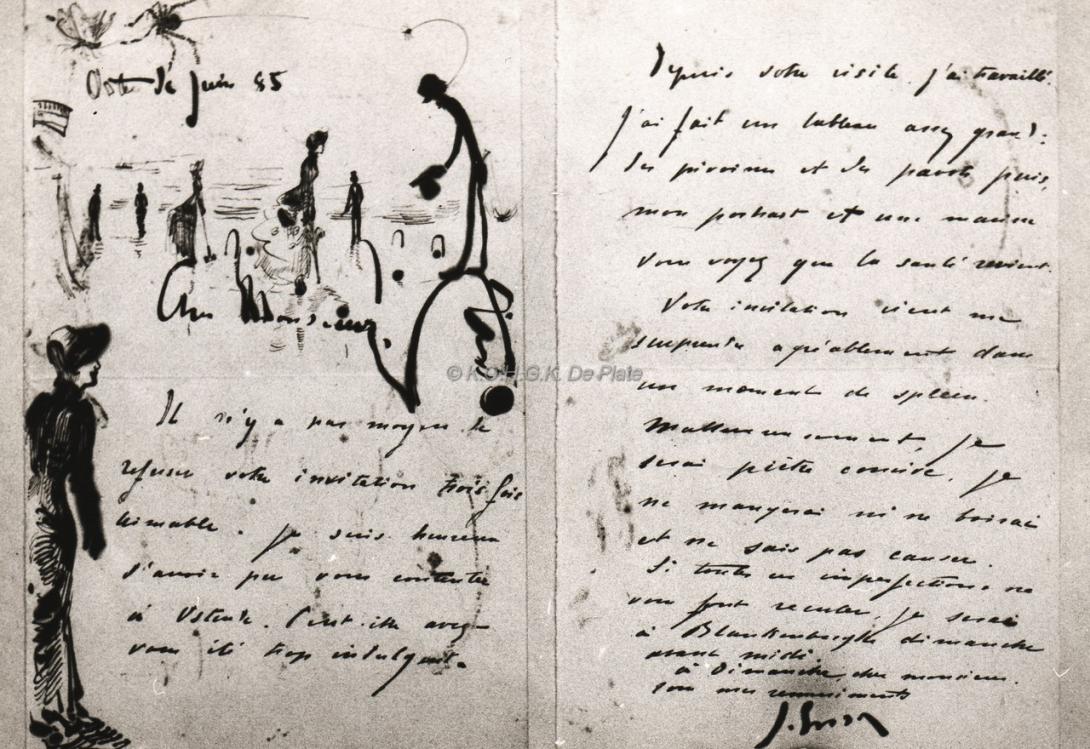 Oste. Juin 85
Cher Monsieur,
Il n'y a pas moyen de
refuser votre invitation trois fois
aimable. Je suis heureux
d'avoir pu vous contenter
à Ostende. Peut-être avez-
vous été trop indulgent.
Depuis votre visite, j'ai travaillé.
J'ai fait un tableau assez grand:
des pivoines et des pavots puis,
mon portrait et une marine
vous voyez que la santé revient.
Votre invitation vient me
surprendre agréablement dans
un moment de spleen.
Malheureusement, je
serai piètre convive. Je
ne mangerai ni ne boirai
et ne sais pas causer.
Si toutes ces imperfections ne
vous font reculer, je serai
à Blankenberghe dimanche
avant midi
à Dimanche, cher monsieur.
mes remerciements
J. Ensor
© K.O.H.G.K. De Plate